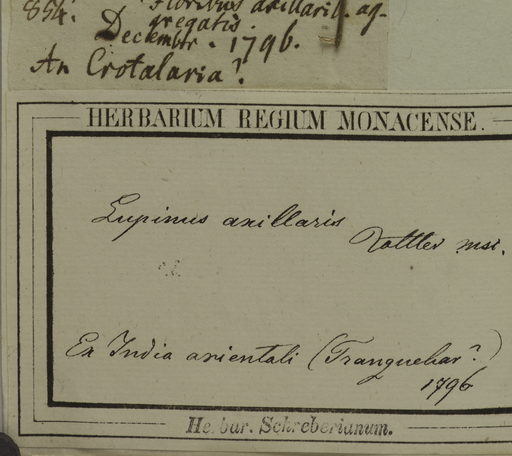 854. Floribus axillarib. ag-
gregatis.
Decembr. 1796.
An Crotalaria?
HERBARIUM REGIUM MONACENSE.
Lupinus axillaris
Rottler msc.
Ex India orientali (Tranquebar?)
1796
Herbar. Schreberianum.